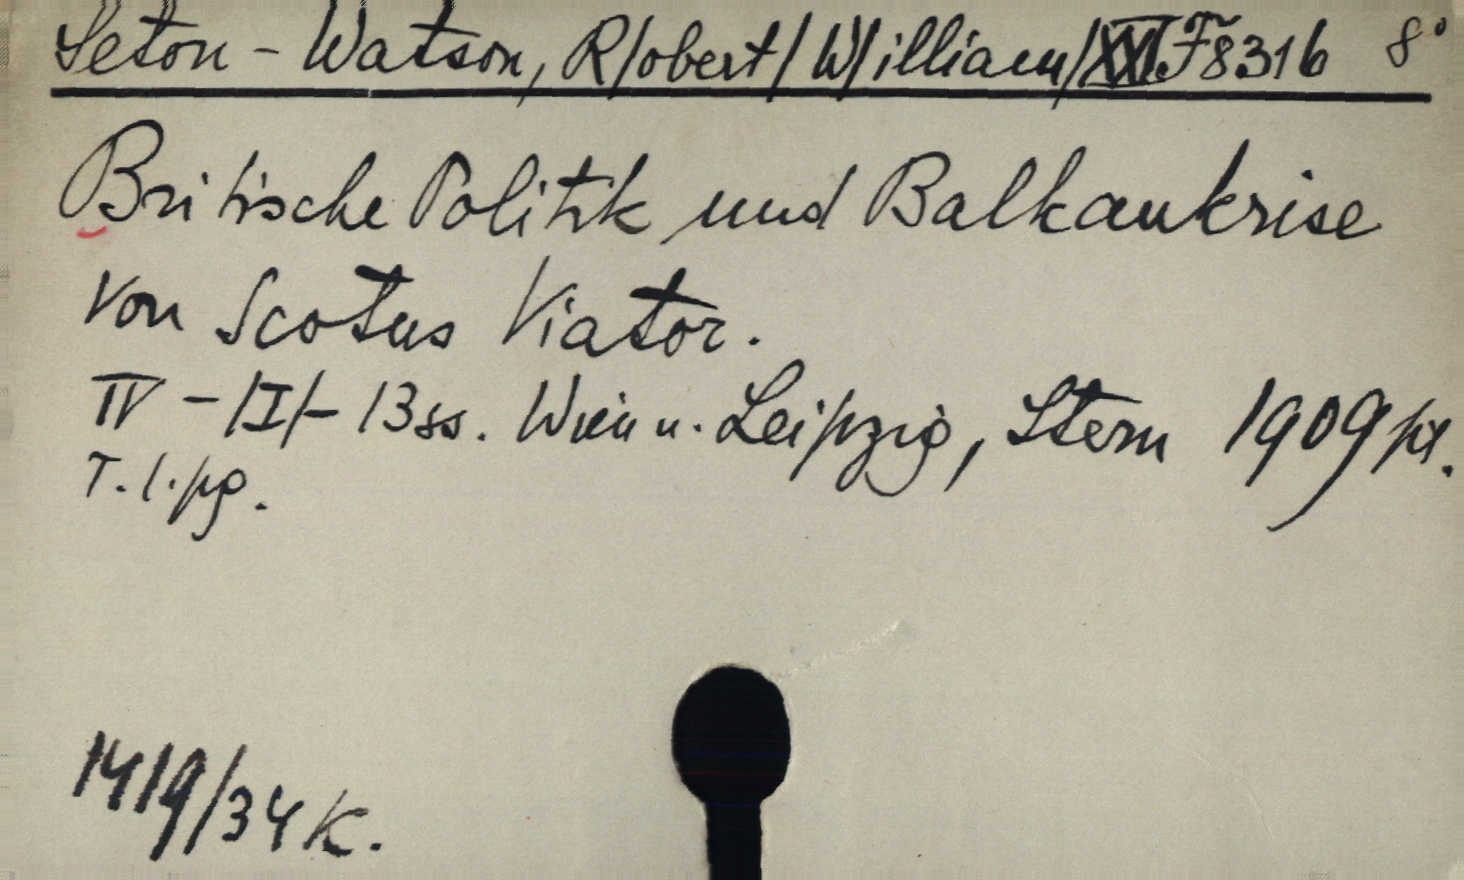 Seton - Watson, R/obert/ W/illiam/ XXI F8316 8°
Britische Politik und Balkankrise
von Scotus Viator.
IV - /I/ - 13 ss. Wien u. Leipzig, Stern 1909 pł.
T. l. pg.
1419/34 K.